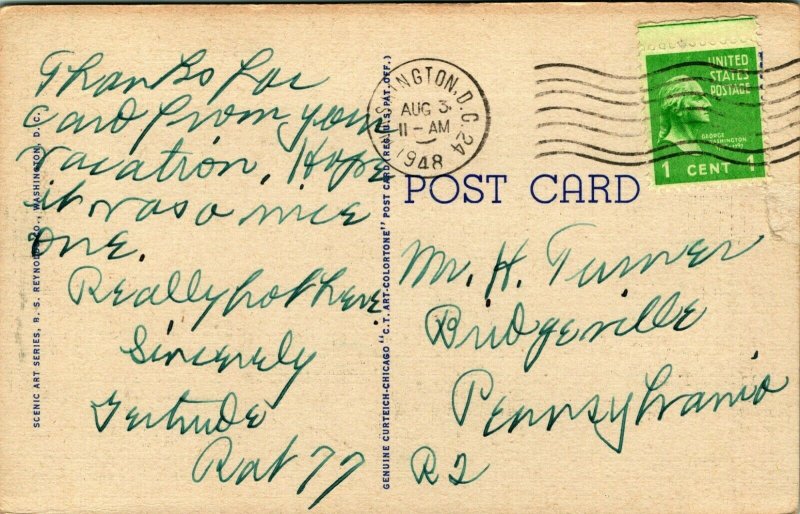 Thanks for
Card from your
Vacation, Hope
it was a nice
one.
Really hot here
Sincerely
Gertrude
SCENIC ART SERIES, B. S. REYNOLDS CO., WASHINGTON, D. C.
GENUINE CURTEICH-CHICAGO "C.T. ART-COLORTONE" POST CARD (REG. U.S. PAT. OFF.)
WASHINGTON, D.C. 24
AUG 3
11-AM
1948
UNITED
STATES
POSTAGE
GEORGE
WASHINGTON
1 CENT 1
POST CARD
Mr. H. Turner
Bridgeville
Pennsylvania
R2